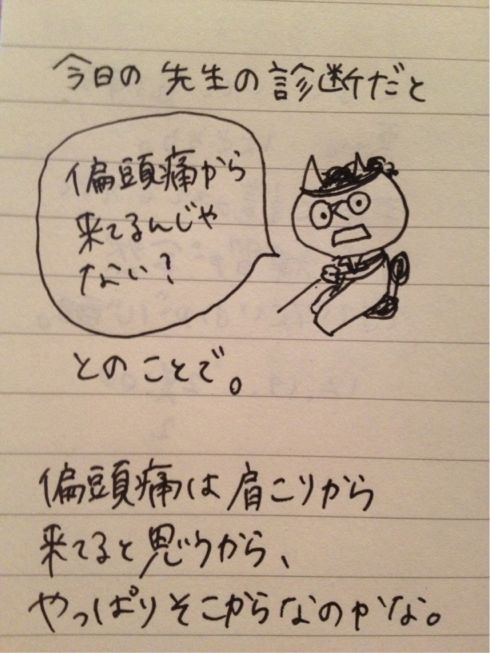 今日の先生の診断だと
偏頭痛から
来てるんじゃ
ない?
とのことで。
偏頭痛は肩こりから
来てると思うから、
やっぱりそこからなのかな。